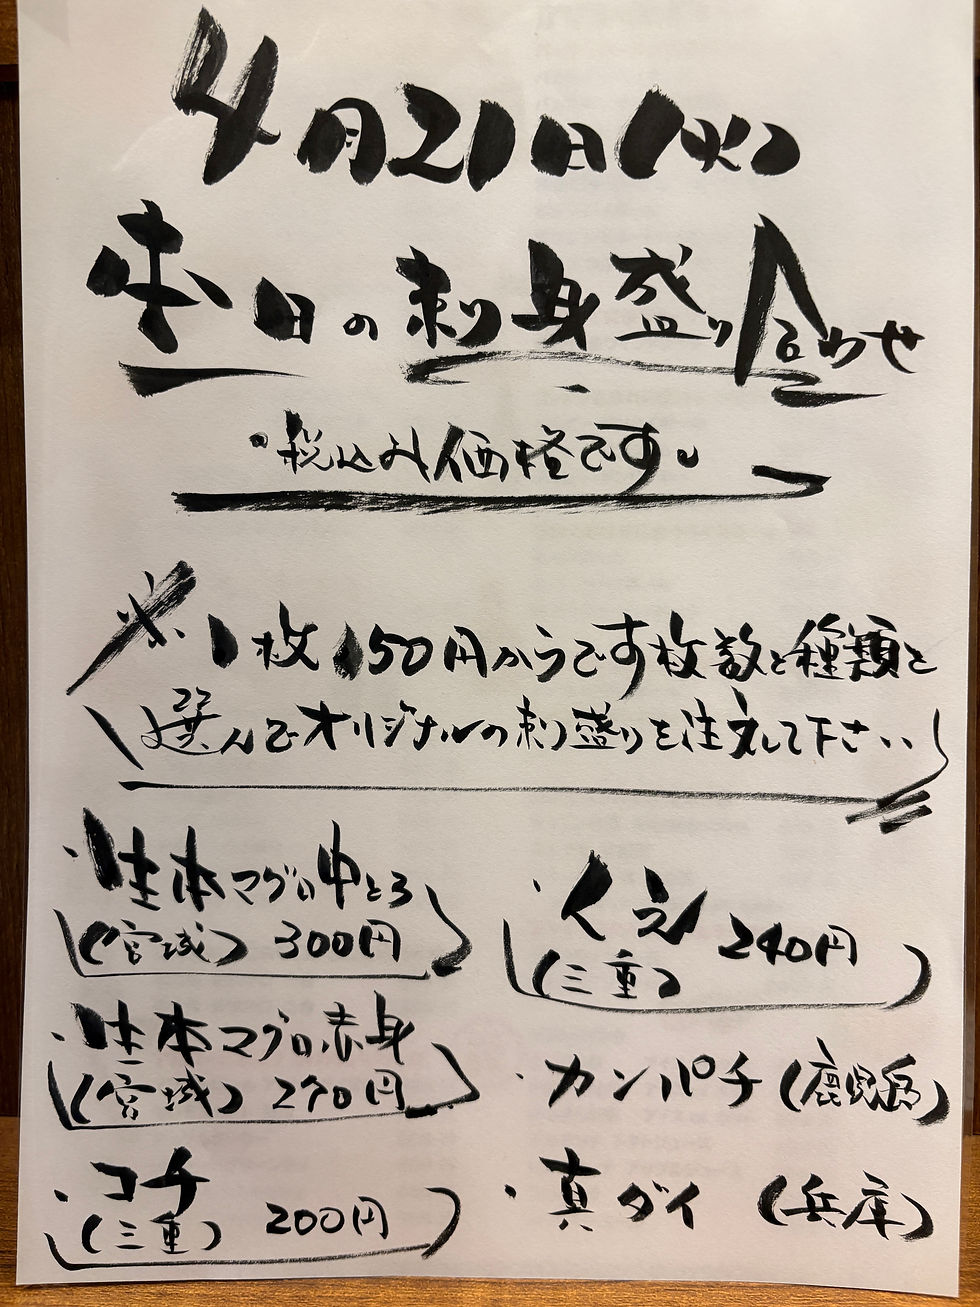 4月21日(火)
本日の刺身盛り合わせ
・税込み価格です。
※1枚150円からです枚数と種類を
選んでオリジナルの刺盛りを注文して下さい
・生本マグロ中とろ
(宮城) 300円
・生本マグロ赤身
(宮城) 270円
・コチ
(三重) 200円
・くえ 240円
(三重)
・カンパチ(鹿児島)
・真ダイ(兵庫)